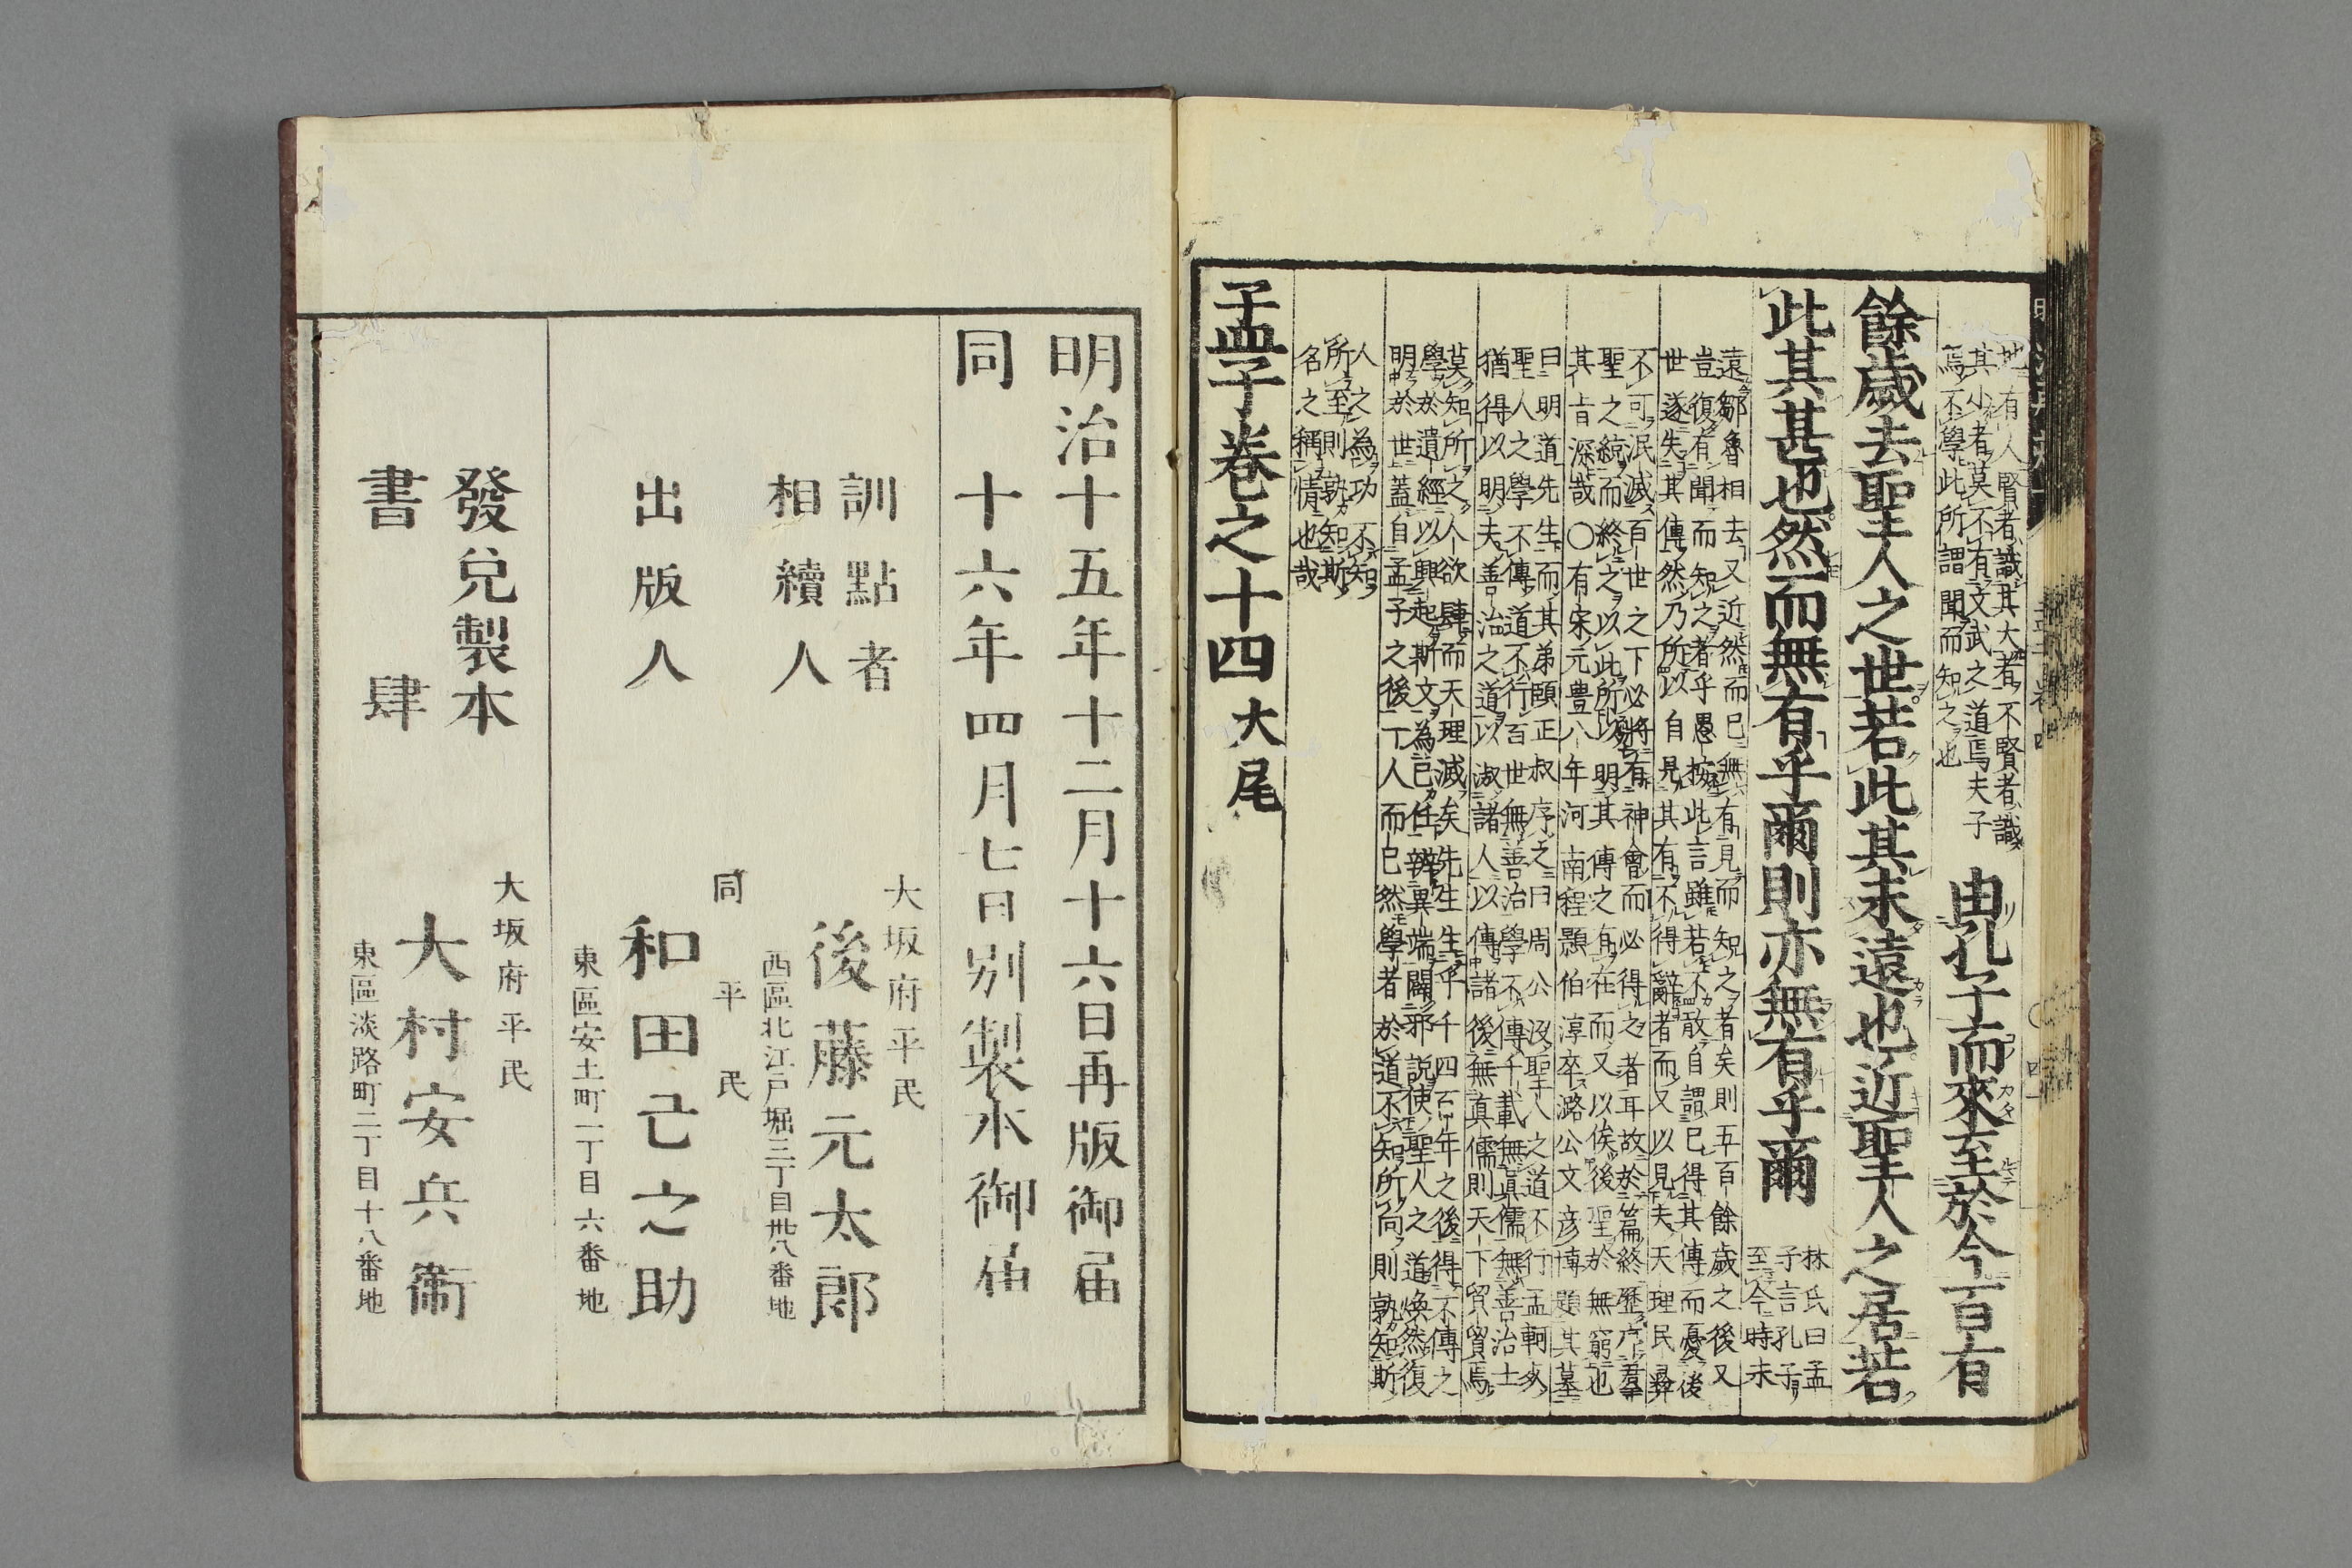 地有人賢者識其大者不賢者識
其小者莫不有文武之道焉夫子
焉不學此所謂聞而知之也
由孔子而來至於今百有
餘歲去聖人之世若此其未遠也近聖人之居若
此其甚也然而無有乎爾則亦無有乎爾
林氏曰孟
子言孔子
至今時未
遠鄒魯相去又近然而已無有見而知之者矣則五百餘歲之後又
豈復有聞而知之者乎愚按此言雖若不敢自謂已得其傳而憂後
世遂失其傳然乃所以自見其有不得辭者而又以見夫天理民彛
不可泯滅百世之下必將有神會而心得之者耳故於篇終歷序羣
聖之統而終之以此所以明其傳之有在而又以俟後聖於無窮也
其旨深哉〇有宋元豊八年河南程顥伯淳卒潞公文彦博題其墓
曰明道先生而其弟頤正叔序之曰周公沒聖人之道不行孟軻死
聖人之學不傳道不行百世無善治學不傳千載無眞儒無善治士
猶得以明夫善治之道以淑諸人以傳諸後無真儒則天下貿貿焉
莫知所之人欲肆而天理滅矣先生生乎千四百年之後得不傳之
學於遺經以興起斯文為已任辨異端闢邪説使聖人之道煥然復
明於世蓋自孟子之後一人而已然學者於道不知所向則孰知斯
人之為功不知
所至則孰知斯
名之稱情也哉
孟子卷之十四 大尾
明治十五年十二月十六日再版御届
同 十六年四月七日別製本御届
訓點者
相續人
大坂府平民
後藤元太郎
西區北江戸堀三丁目卅八番地
出版人
同 平民
和田己之助
東區安土町一丁目六番地
發兌製本
書肆
大坂府平民
大村安兵衞
東區淡路町二丁目十八番地